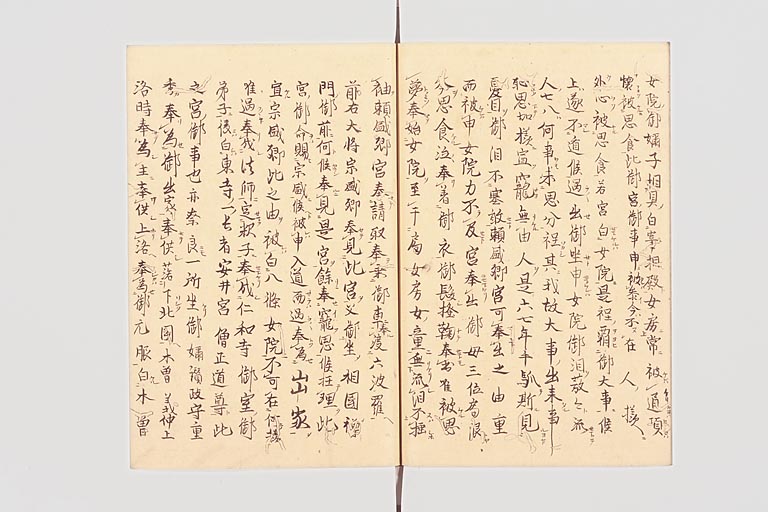 女院御姉子相具白事換殿女房常被通頂
懐被思食比御宮御事申被参今不在人様
外心被思食若宮白女院是程覇御大事候
上遂不道候過出御坐申女院御泪敢々流
人七八何事未思分程其我故大事出来事
恥思加様宣寵無由人是六七年手馴斯見
憂目御泪不塞敢頼盛卿宮可奉出之由重
而被申女院力不及宮奉出御母三位局限
今思食泣奉着御衣御髪撥鞠奉出唯被思
夢奉始女院至于局女房女童無流泪不極
袖頼盛卿宮奉請取奉乗御車奉渡六波羅
前右大将宗盛卿奉見此宮父御坐相国禅
門御前何候奉見是宮餘奉寵思候枉理此
宮御命賜宗盛候被申入道而過奉為出家
宜宗盛卿此之由被白八條女院不可在何様
唯過奉我法師定釈子奉成仁和寺御室御
弟子後白東寺一長者安井宮僧正道尊此
之宮御事也亦奈良一所坐御姉讃岐守重
秀奉為御出家奉供落下北国木曽義仲上
洛時奉為主奉供上洛奉為御元服白木曽